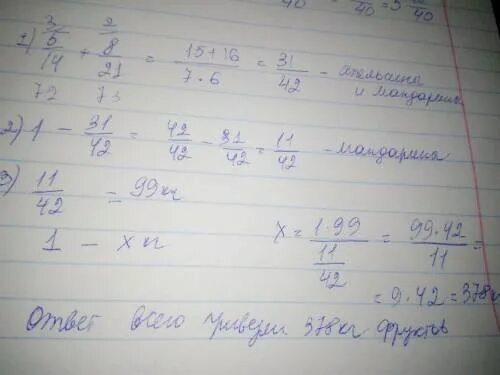 40 40 = 5 40
1) 5/14 + 8/21 = (15+16)/(7·6) = 31/42 – апельсина
и мандарина
2) 1 – 31/42 = 42/42 – 31/42 = 11/42 – мандарина
3) 11/42 = 99 кг
1 – x кг
x = (1·99)/(11/42) = (99·42)/11 =
= 9·42 = 378 к
Ответ всего привезли 378 кг фруктов